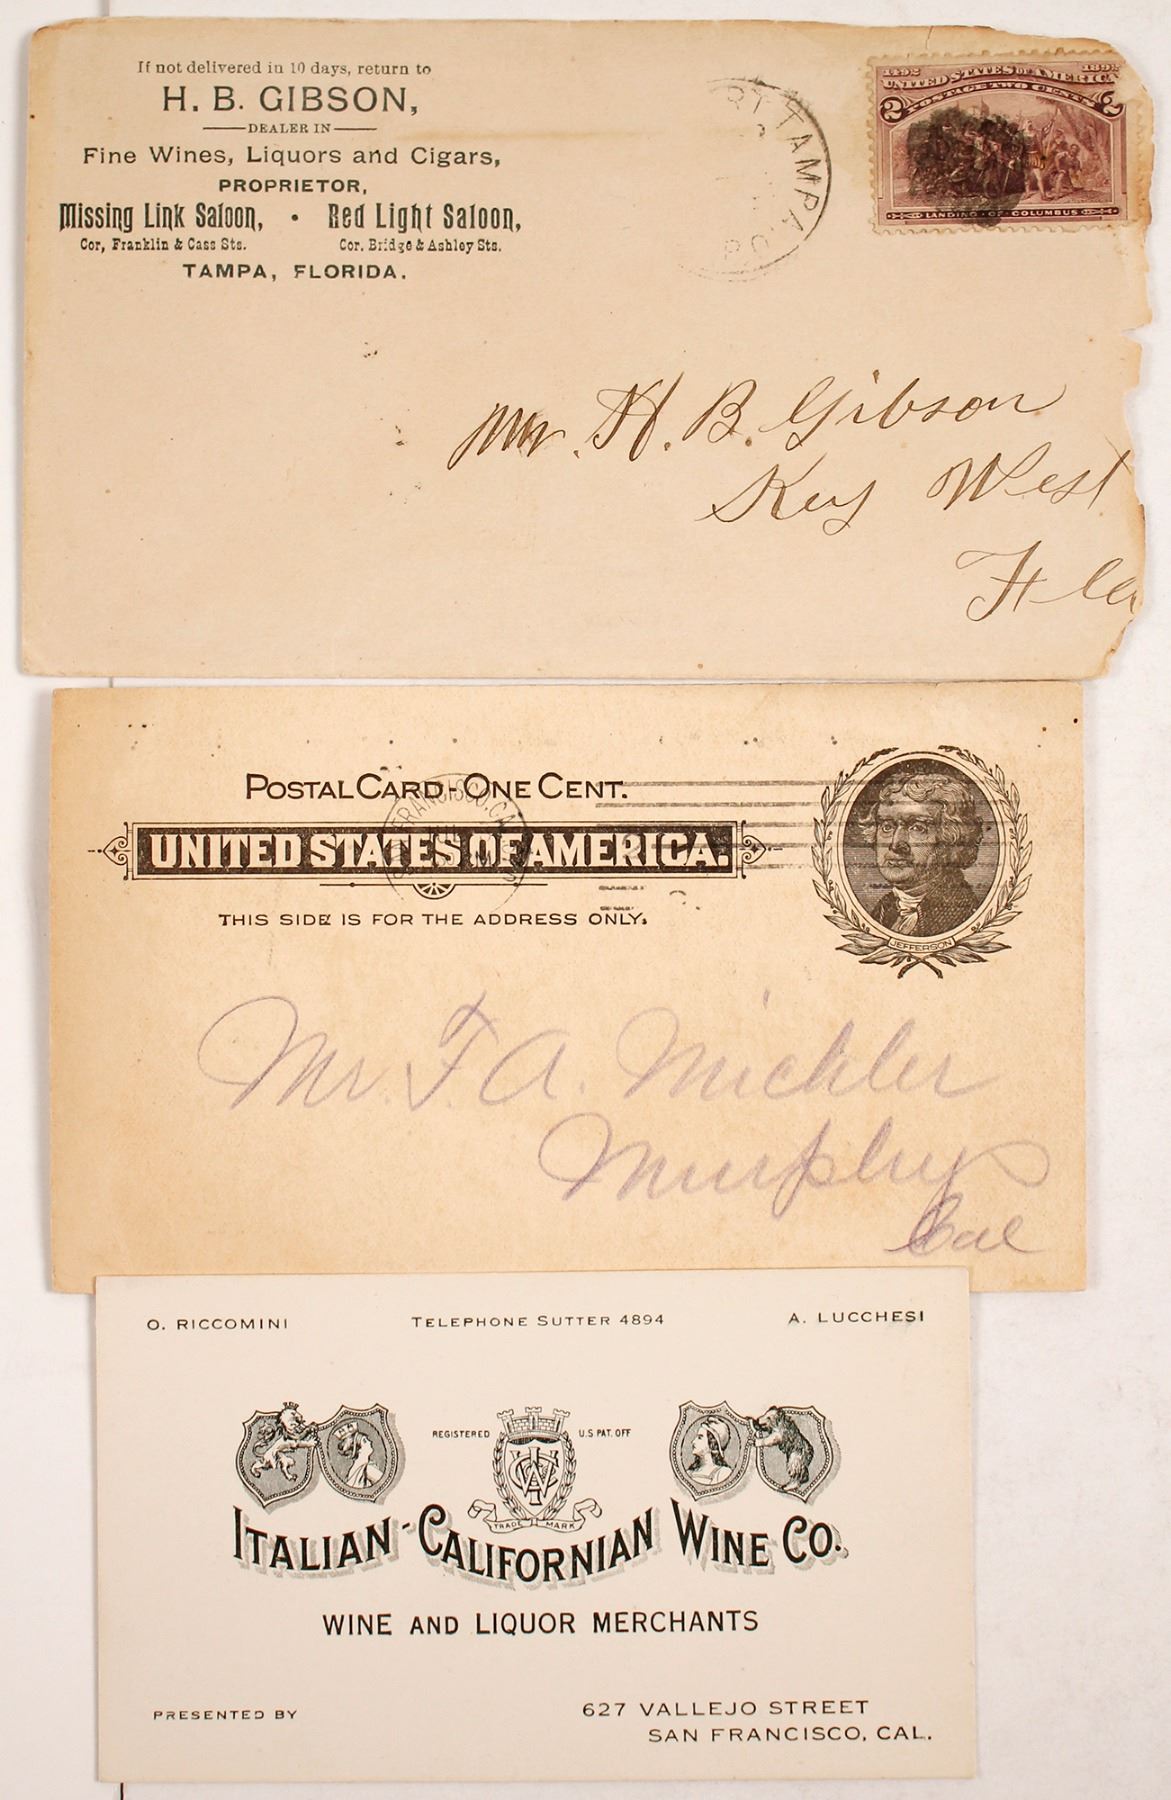 If not delivered in 10 days, return to
H. B. GIBSON,
DEALER IN
Fine Wines, Liquors and Cigars,
PROPRIETOR,
Missing Link Saloon, • Red Light Saloon,
Cor, Franklin & Cass Sts. Cor. Bridge & Ashley Sts.
TAMPA, FLORIDA.
RT TAMPA
1492 1892
UNITED STATES OF AMERICA
2 POSTAGE TWO CENTS 2
LANDING OF COLUMBUS
Mr. H. B. Gibson
Key West
Fla
POSTAL CARD - ONE CENT.
UNITED STATES OF AMERICA.
THIS SIDE IS FOR THE ADDRESS ONLY.
FRANCISCO, CA
JEFFERSON
Mr. F. A. Mickler
Murphys
Cal
O. RICCOMINI TELEPHONE SUTTER 4894 A. LUCCHESI
REGISTERED U.S PAT. OFF
TRADE MARK
ITALIAN-CALIFORNIAN WINE CO.
WINE AND LIQUOR MERCHANTS
PRESENTED BY
627 VALLEJO STREET
SAN FRANCISCO, CAL.